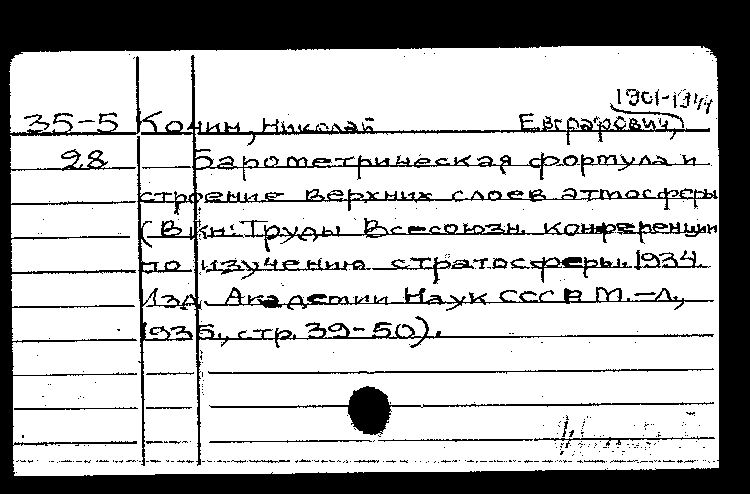 1901-1944
35-5 Кочин, Николай Евграфович,
28 Барометрическая формула и
строение верхних слоев атмосферы
(В кн: Труды Всесоюзн. конференции
по изучению стратосферы. 1934.
Изд. Академии Наук СССР М.-Л.,
1935., стр. 39-50).